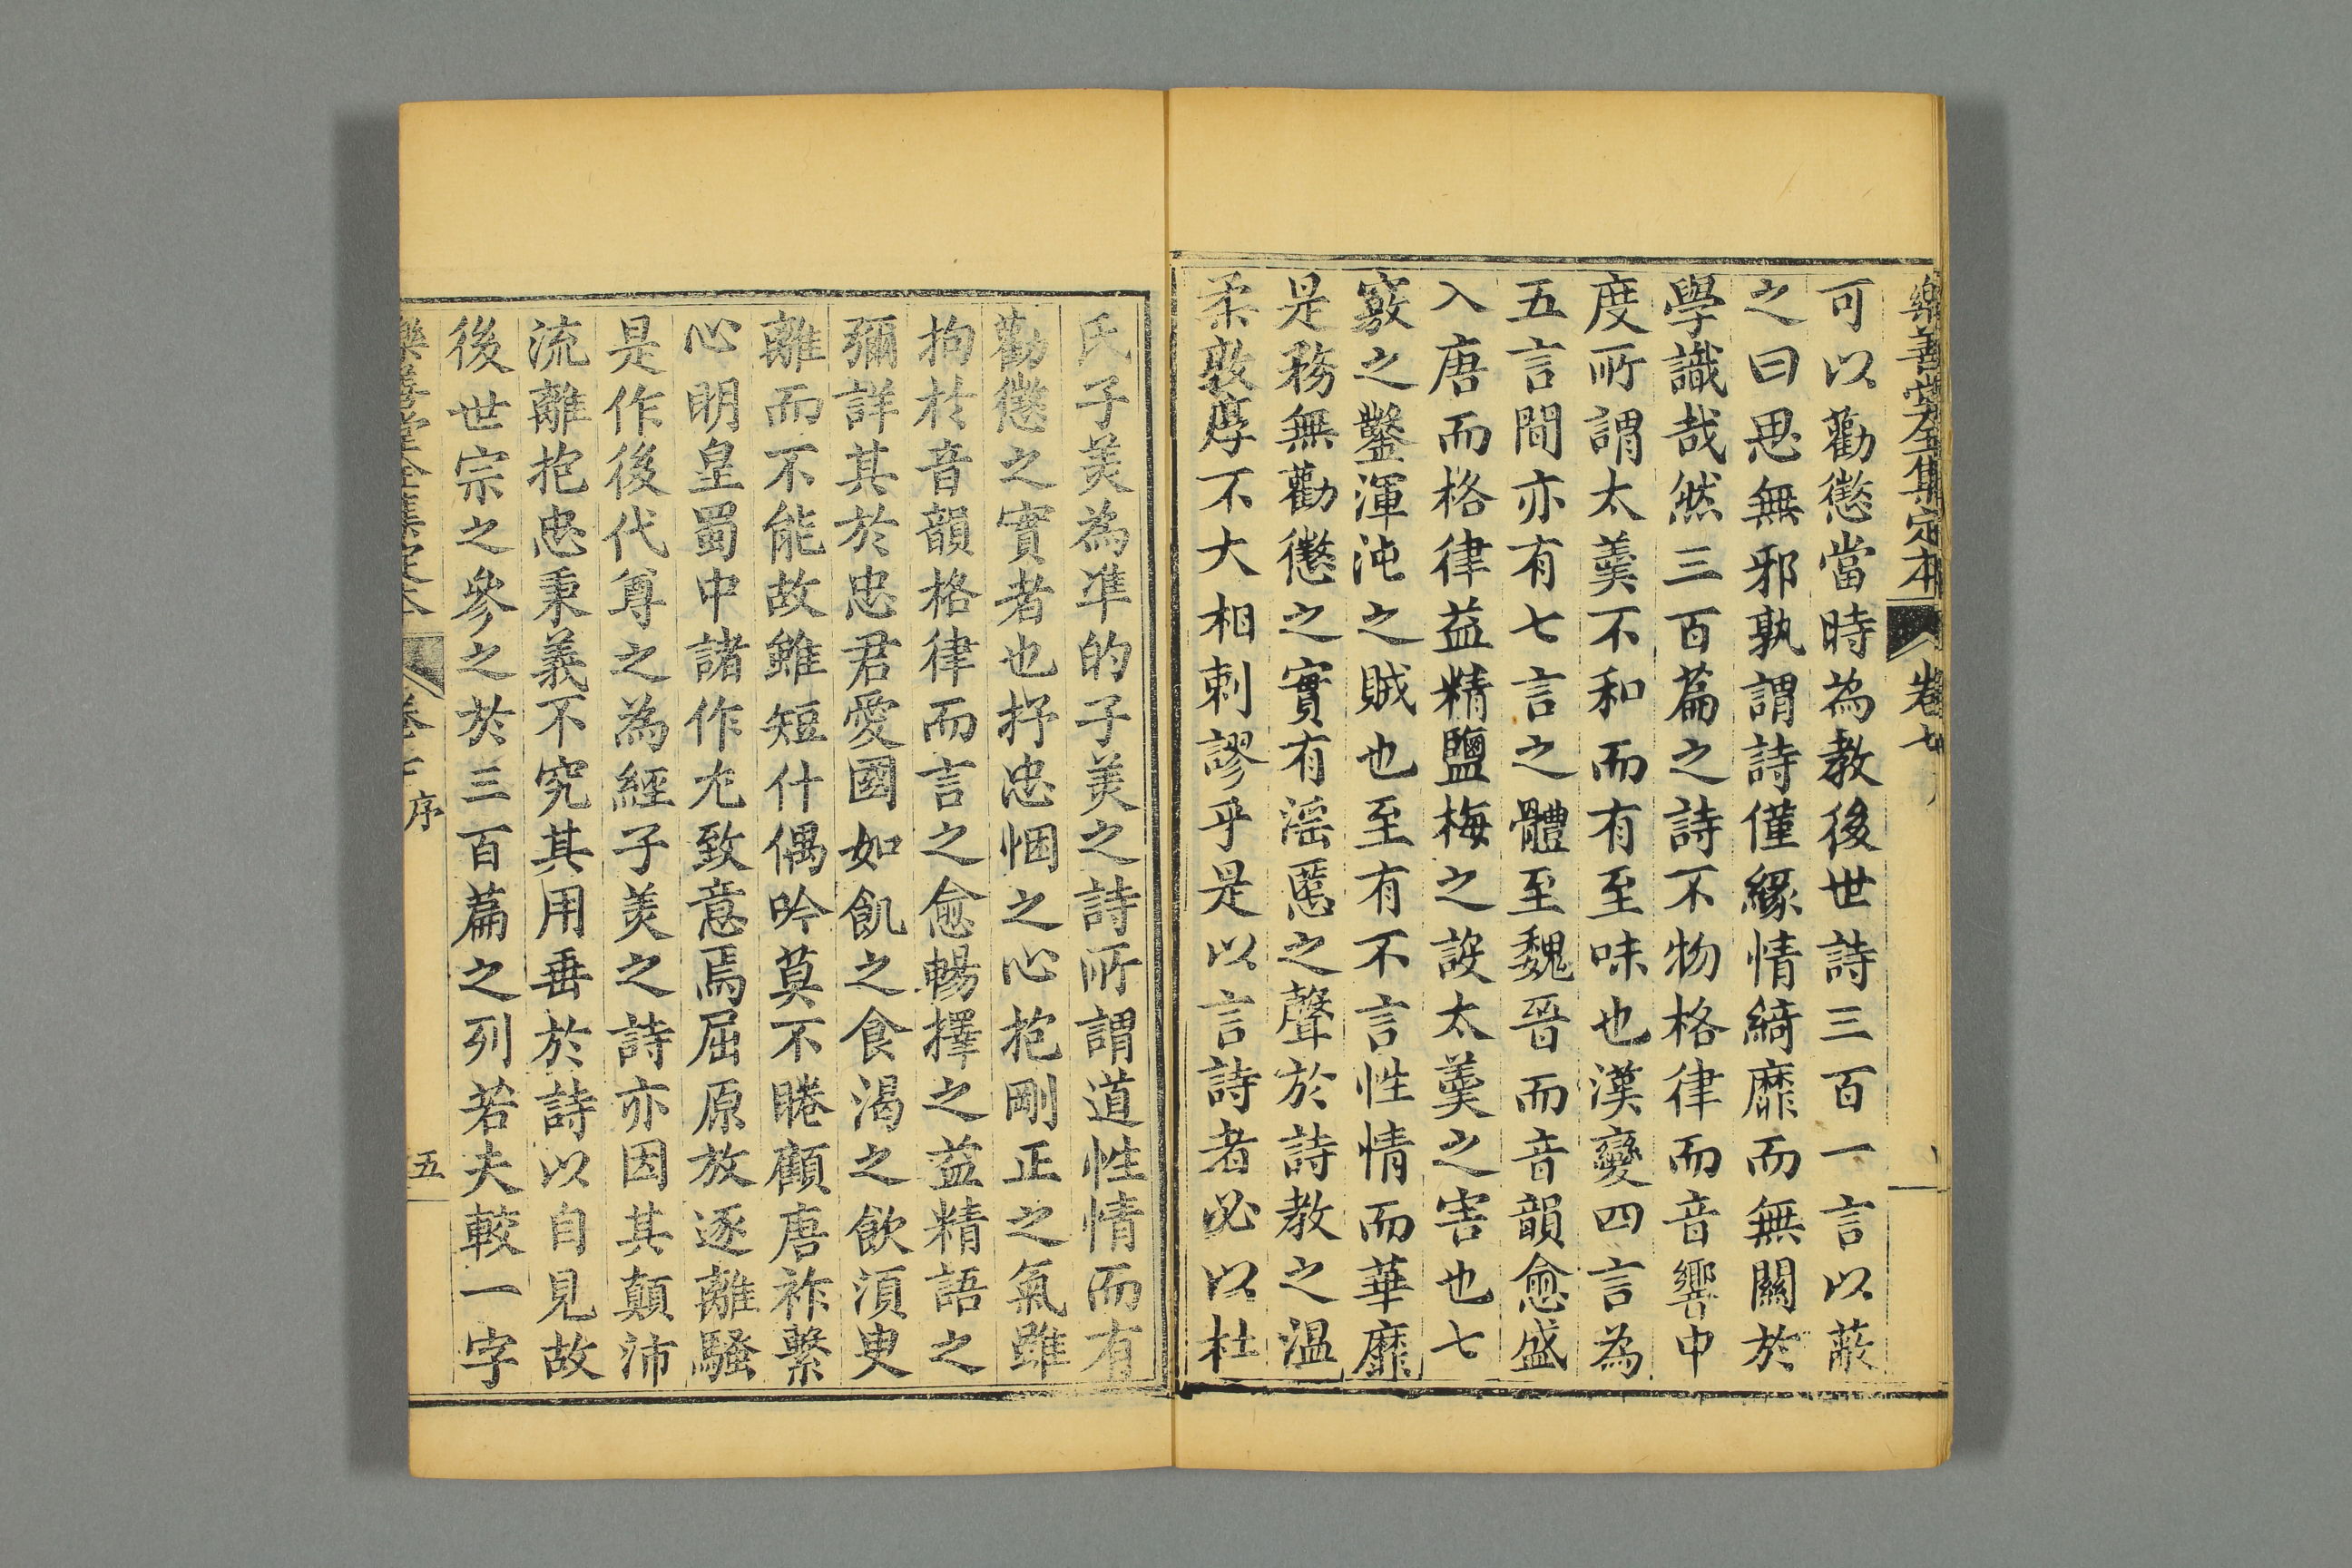 樂善堂全集定本 卷七
可以勸懲當時為教後世詩三百一言以蔽
之曰思無邪孰謂詩僅緣情綺靡而無關於
學識哉然三百篇之詩不物格律而音響中
度所謂太羹不和而有至味也漢變四言為
五言間亦有七言之體至魏晉而音韻愈盛
入唐而格律益精鹽梅之設太羹之害也七
竅之鑿渾沌之賊也至有不言性情而華靡
是務無勸懲之實有滛慝之聲於詩教之温
柔敦厚不大相刺謬乎是以言詩者必以杜
氏子美為準的子美之詩所謂道性情而有
勸懲之實者也抒忠悃之心抱剛正之氣雖
拘於音韻格律而言之愈暢擇之益精語之
彌詳其於忠君愛國如飢之食渴之飲須臾
離而不能故雖短什偶吟莫不睠顧唐祚繫
心明皇蜀中諸作尤致意焉屈原放逐離騷
是作後代尊之為經子美之詩亦因其顛沛
流離抱忠秉義不究其用垂於詩以自見故
後世宗之參之於三百篇之列若夫較一字
樂善堂全集定本 卷七 序 五